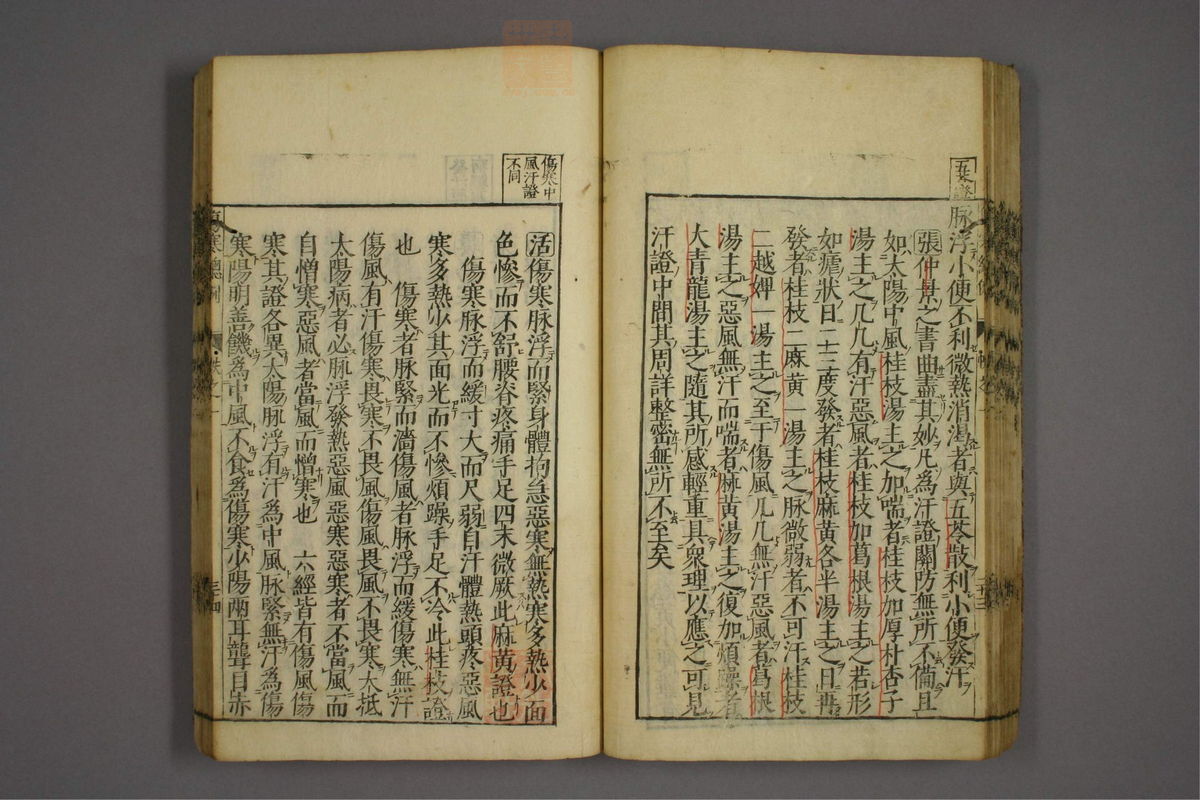 五苓證
脉浮小便不利微熱消渴者與五苓散利小便發汗
張仲景之書曲盡其妙凡為汗證關防無所不備且
如太陽中風桂枝湯主之加喘者桂枝加厚朴杏子
湯主之几几有汗惡風者桂枝加葛根湯主之若形
如瘧狀日二三度發者桂枝麻黄各半湯主之日再
發者桂枝二麻黄一湯主之脉微弱者不可汗桂枝
二越婢一湯主之至于傷風几几無汗惡風者葛根
湯主之惡風無汗而喘者麻黄湯主之復加煩躁者
大青龍湯主之隨其所感輕重具衆理以應之可見
汗證中間其周詳整密無所不至矣
傷寒中
風汗證
不同
活傷寒脉浮而緊身體拘急惡寒無熱寒多熱少面
色慘而不舒腰脊疼痛手足四末微厥此麻黄證也
傷寒脉浮而緩寸大而尺弱自汗體熱頭疼惡風
寒多熱少其面光而不慘煩躁手足不冷此桂枝證
也 傷寒者脉緊而濇傷風者脉浮而緩傷寒無汗
傷風有汗傷寒畏寒不畏風傷風畏風不畏寒大抵
太陽病者必脉浮發熱惡風惡寒惡寒者不當風而
自憎寒惡風者當風而憎寒也 六經皆有傷風傷
寒其證各異太陽脉浮有汗為中風脉緊無汗為傷
寒陽明善饑為中風不食為傷寒少陽兩耳聾目赤
傷寒總例
三四